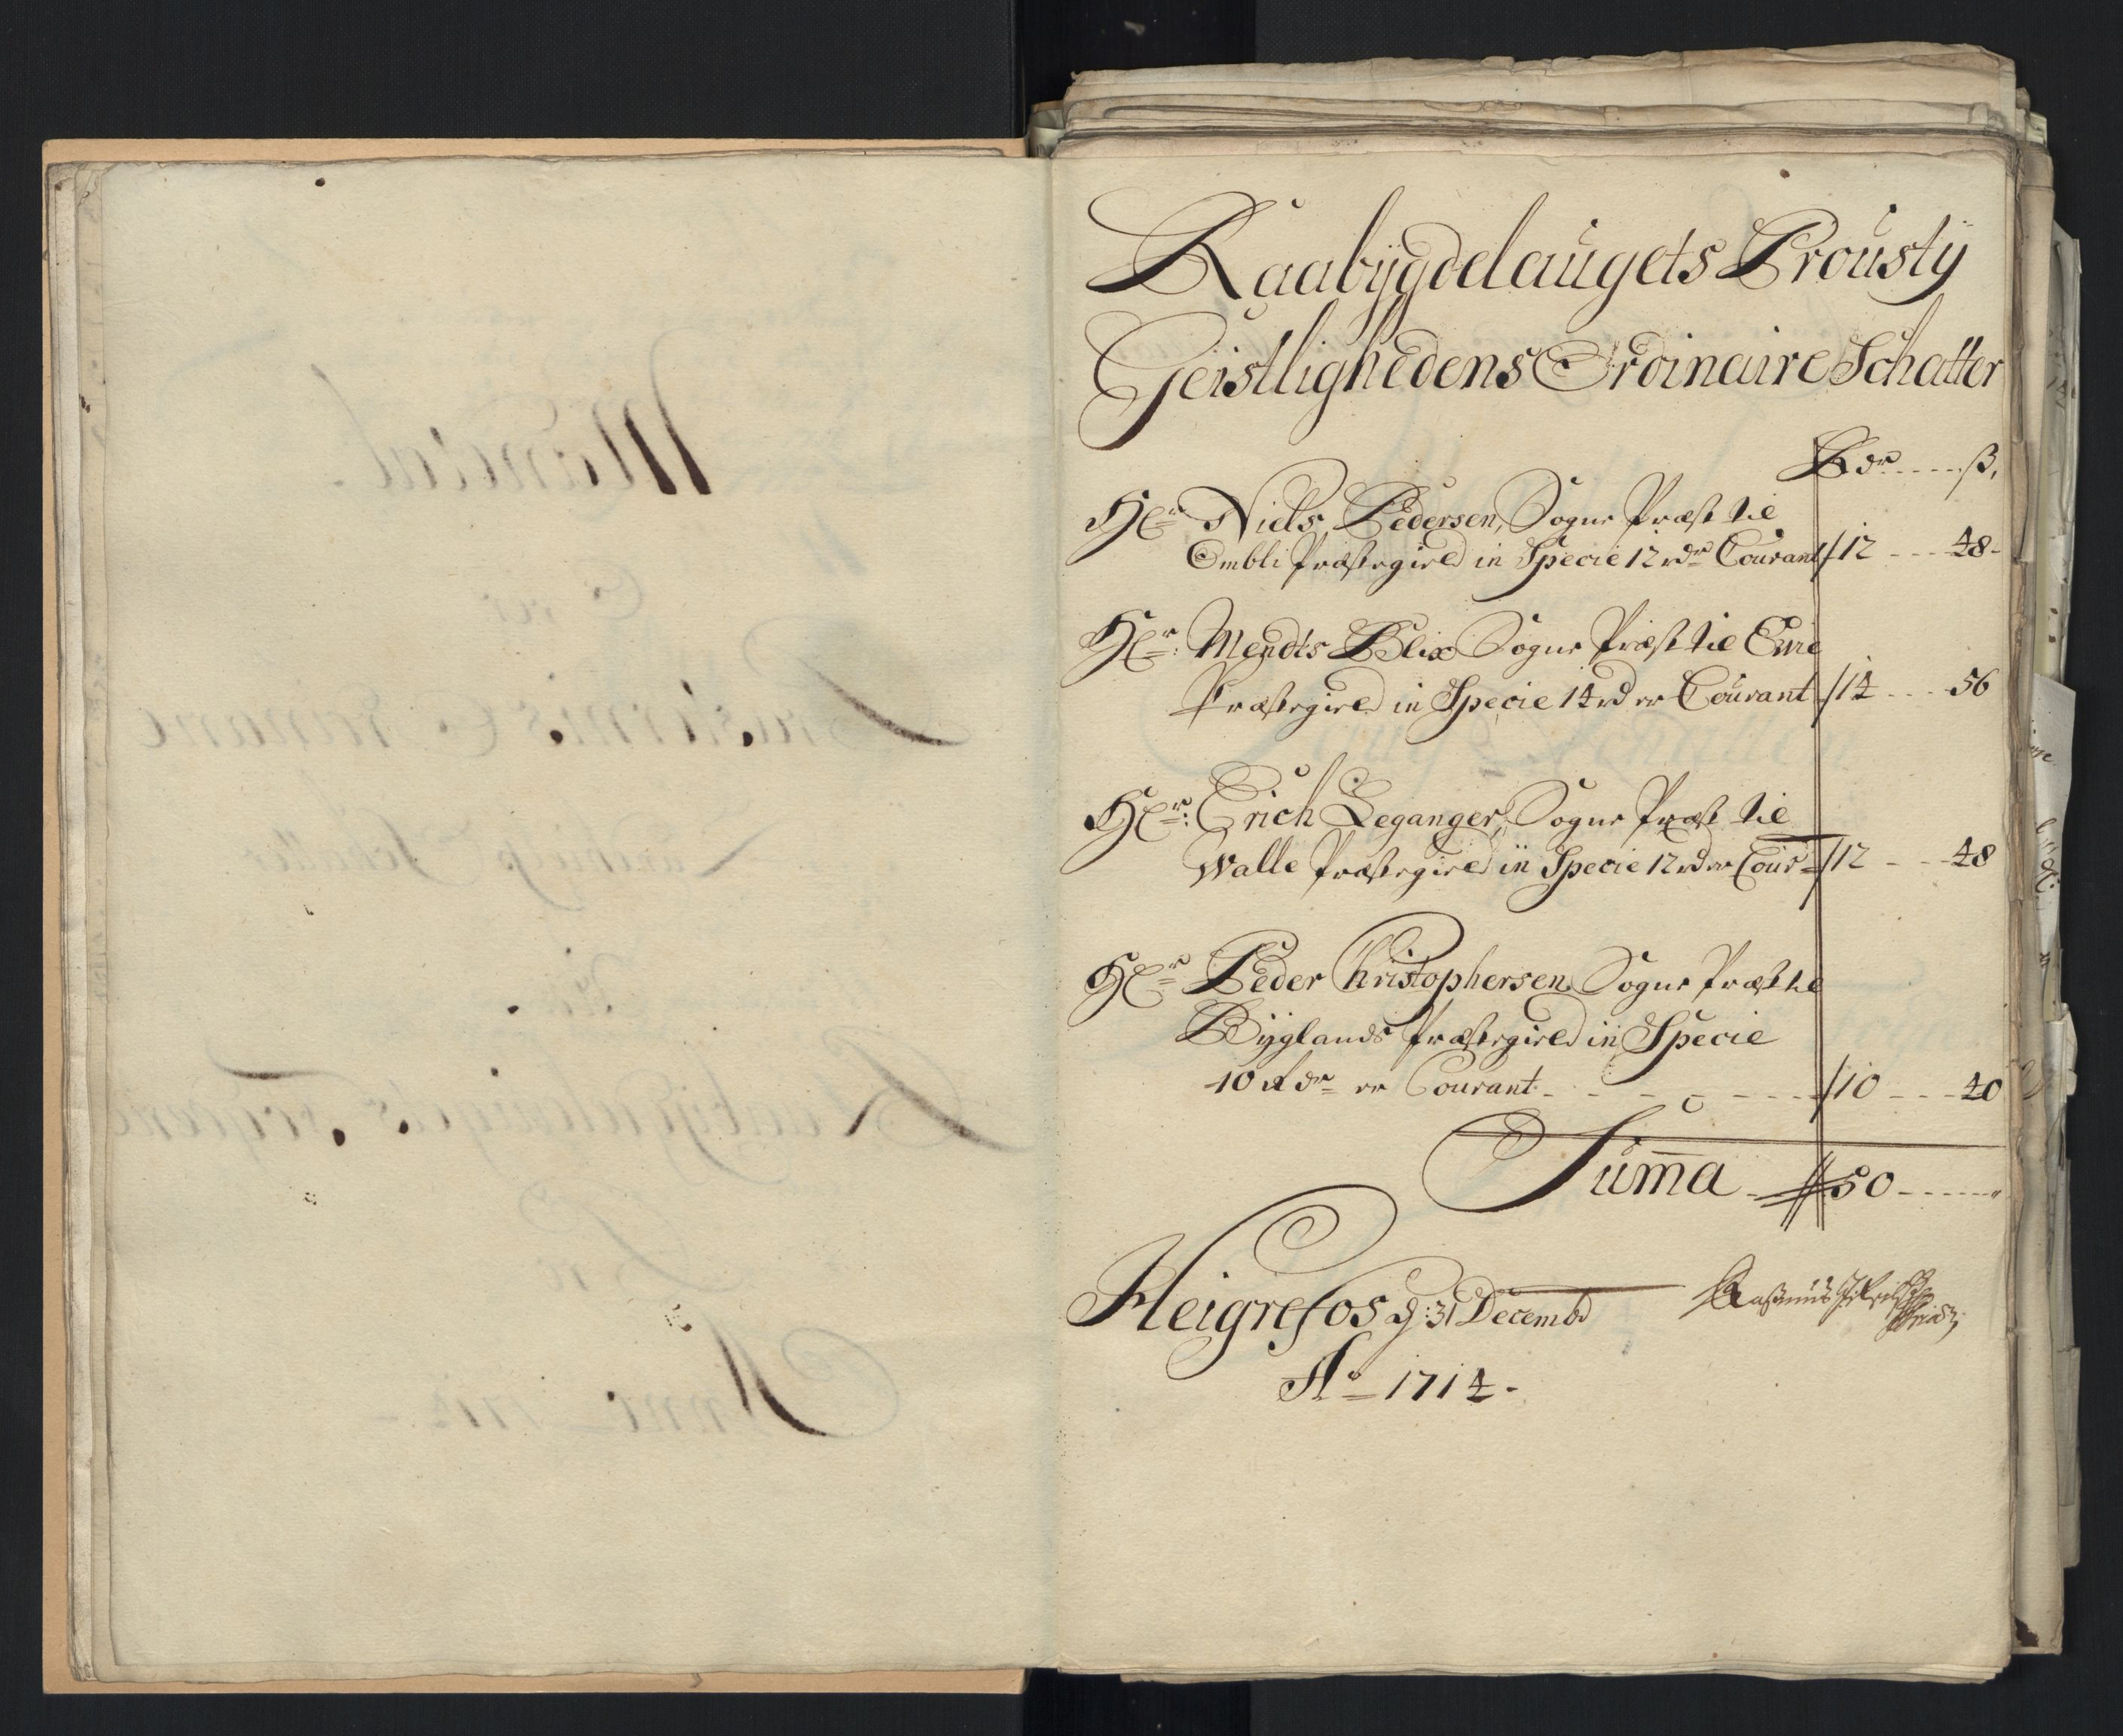 Raabÿgdelaugets Prousty
Geistlighedens Ordinaire Schatter
Rdr ß.
Hr Niels Pedersen, Sogne Præst til
Embli Præstegield in Specie 12 rdr Courant 12 - - - 48 -
Hr: Mendts Blix Sogne Præst til Evie
Præstegield in Specie 14 rd er Courant 14 - - - 56
Hr: Erich Leganger, Sogne Præst til
Walle Præstegield in Specie 12 rd er Cour 12 - - - 48
Hr Peder Christophersen Sogne Præst til
Bÿglands Præstegield in Specie
10 Rdr er Courant - - - - - - 10 - - - 40
Sum̅a - 50 - - - - -
Heigrefos d: 31 Decembr
Ao 1714 -